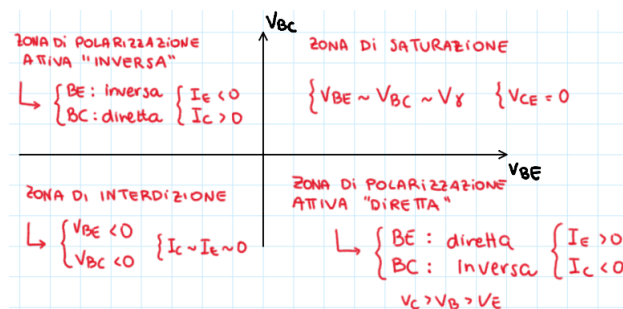 V_BC
ZONA DI POLARIZZAZIONE
ATTIVA "INVERSA"
↳ { BE: inversa { I_E < 0
BC: diretta { I_C > 0
ZONA DI SATURAZIONE
{ V_BE ~ V_BC ~ V_γ { V_CE = 0
V_BE
ZONA DI INTERDIZIONE
↳ { V_BE < 0
V_BC < 0 { I_C ~ I_E ~ 0
ZONA DI POLARIZZAZIONE
ATTIVA "DIRETTA"
↳ { BE: diretta { I_E > 0
BC: inversa { I_C < 0
V_C > V_B > V_E